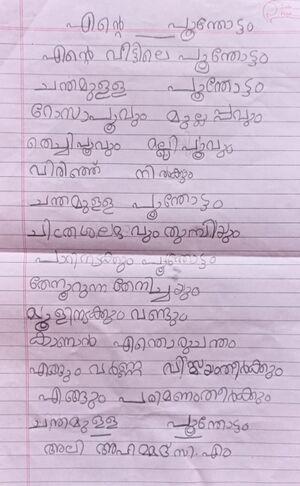 എന്റെ പൂന്തോട്ടം
എന്റെ വീട്ടിലെ പൂന്തോട്ടം
ചന്തമുള്ള പൂന്തോട്ടം
റോസാപ്പൂവും മുല്ലപ്പൂവും
തെച്ചിപ്പൂവും മല്ലിപ്പൂവും
വിരിഞ്ഞ് നിൽക്കും
ചന്തമുള്ള പൂന്തോട്ടം
ചിത്രശലഭവും തുമ്പിയും
പാറിനടക്കും പൂന്തോട്ടം
തേനൂറുന്ന തേനീച്ചയും
മൂളിനടക്കും വണ്ടും
കാണാൻ എന്തൊരുചന്തം
എങ്ങും വർണ്ണ വിസ്മയംതീർക്കും
എങ്ങും പരിമണംതീർക്കും
ചന്തമുള്ള പൂന്തോട്ടം
അലി അഹമ്മദ് സി.എം